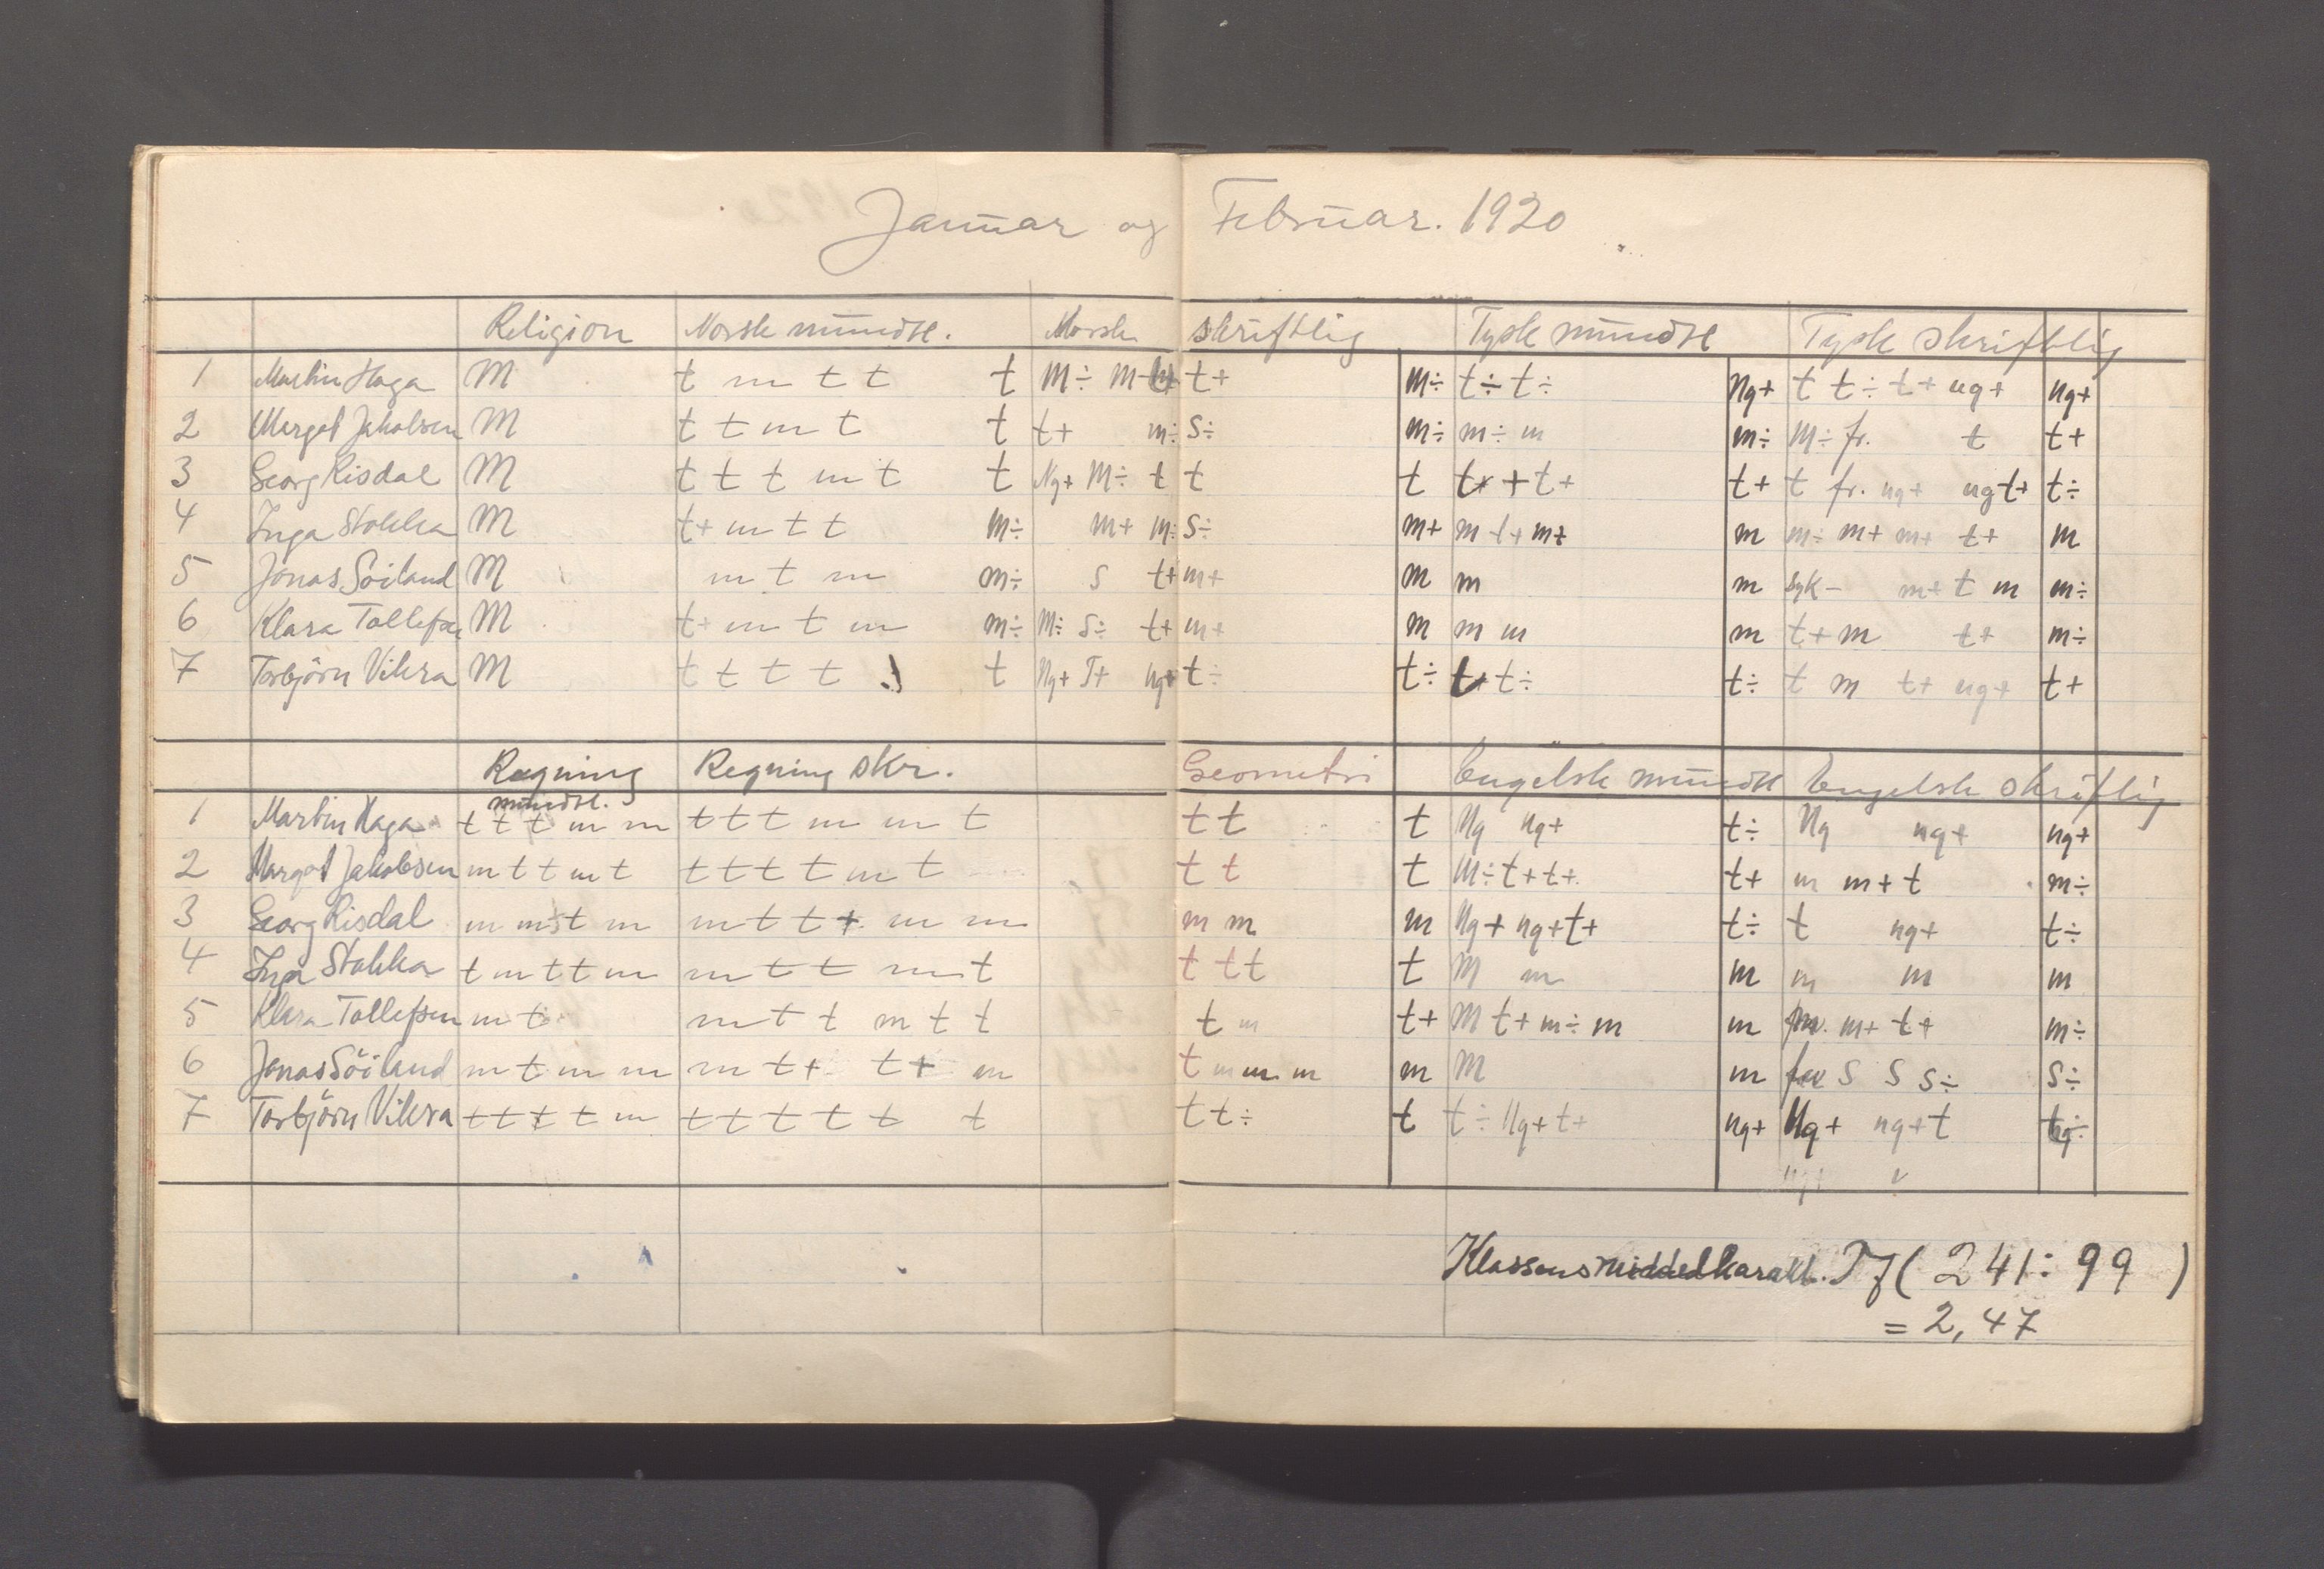 Januar og Februar. 1920
Religion Norsk mündtl. Norsk skriftlig Tysk mündtl Tysk skriftlig
1 Martin Haga M t m t t t M÷ M t+ M÷ t÷ t÷ Ng+ t t÷ t+ ng+ ng+
2 Margot Jakobsen M t t m t t t+ m÷ S÷ m÷ m÷ m m÷ M÷ fr. t t+
3 Georg Risdal M t t t m t t Ng+ M÷ t t t t+ + t+ t+ t fr. ng+ ng t+ t÷
4 Inga Stokka M t+ m t t M÷ m+ m÷ S÷ m+ m t+ m+ m m÷ m+ m+ t+ m
5 Jonas Söiland M m t m m÷ s t+ m+ m m m syk- m+ t m m÷
6 Klara Tollefsen M t+ m t m m÷ M÷ S÷ t+ m+ m m m m t+ m t+ m÷
7 Torbjörn Vikra M t t t t t Ng+ T+ ng+ t÷ t÷ t+ t÷ t÷ t m t+ ng+ t+
Regning mündtl. Regning skr. Geometri Engelsk mündtl Engelsk skriftlig
1 Martin Haga t t t m m t t t m m t t t t Ng ng+ t÷ Ng ng+ ng+
2 Margot Jakobsen m t t m t t t t t m t t t t M÷ t+ t+ t+ m m+ t m÷
3 Georg Risdal m m t m m t t + m m m m m Ng+ ng+ t+ t÷ t ng+ t÷
4 Inga Stokka t m t t m m t t m t t t t t M m m m m m
5 Klara Tollefsen m t m t t m t t t m t+ M t+ m÷ m m m+ t+ m÷
6 Jonas Söiland m t m m m t+ t+ m t m m m m M m S S S÷ S÷
7 Torbjörn Vikra t t t t m t t t t t t t t÷ t t÷ Ng+ t+ ng+ Ng+ ng+ t
Klassens middelkarakt. Tf (241:99)
= 2,47